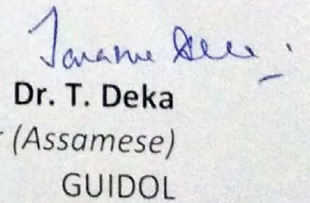 Dr. T. Deka
r (Assamese)
GUIDOL